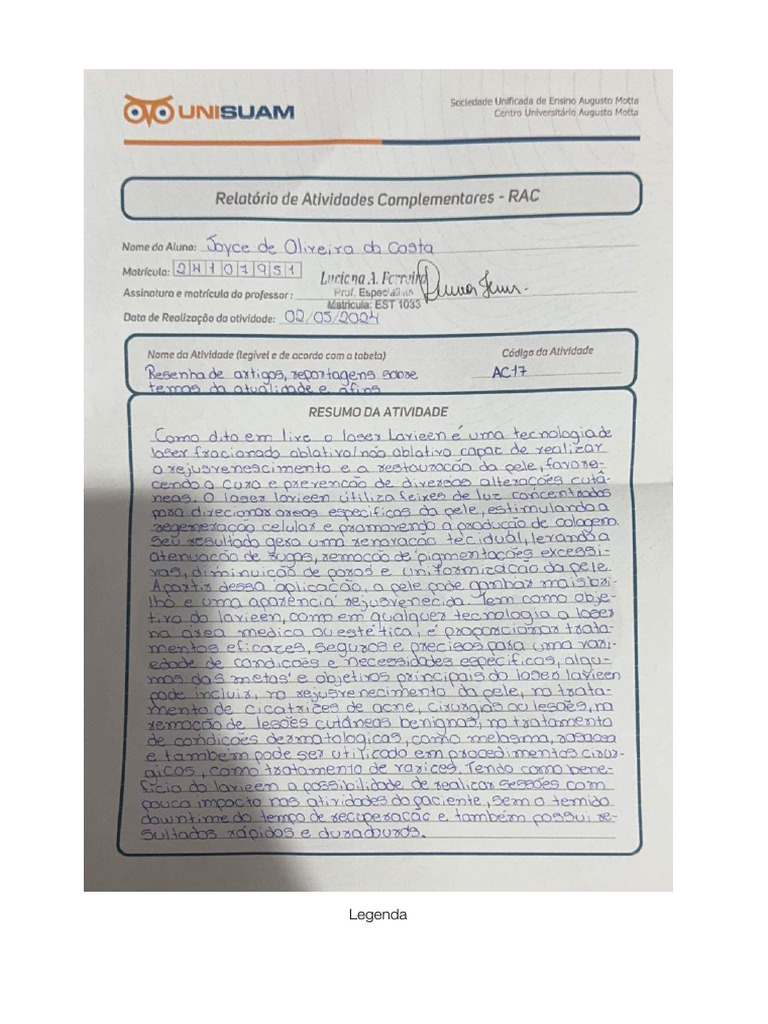 UNISUAM
Sociedade Unificada de Ensino Augusto Motta
Centro Universitário Augusto Motta
Relatório de Atividades Complementares - RAC
Nome do Aluno: Joyce de Oliveira da Costa
Matrícula: 24107951
Luciana A. Ferreira
Assinatura e matrícula do professor: Prof. Especialista
Matrícula: EST 1033
Data de Realização da atividade: 02/05/2024
Nome da Atividade (legível e de acordo com a tabela)
Código da Atividade
Resenha de artigos, reportagens sobre
temas da atualidade e afins
AC17
RESUMO DA ATIVIDADE
Como dito em live o laser Lavieen é uma tecnologia de
laser fracionado ablativo/não ablativo capaz de realizar
o rejusvenescimento e a restauração da pele, favore-
cendo a cura e prevenção de diversas alterações cutâ-
neas. O laser lavieen utiliza feixes de luz concentrados
para direcionar areas especificas da pele, estimulando a
regeneração celular e promovendo a produção de colageno.
Seu resultado gera uma renovação tecidual, levando a
atenuação de rugas, remoção de pigmentações excessi-
vas, diminuição de poros e uniformização da pele.
Apartir dessa aplicação, a pele pode ganhar mais bri-
lho e uma aparência rejusvenecida. Tem como obje-
tivo do lavieen, como em qualquer tecnologia a laser
na área medica ou estética, é proporcionar trata-
mentos eficazes, seguros e precisos para uma vari-
edade de condicões e necessidades especificas, algu-
mas das metas e objetivos principais do laser lavieen
pode incluir, no rejusvenecimento da pele, no trata-
mento de cicatrizes de acne, cirurgias ou lesões, na
remoção de lesões cutâneas benignas, no tratamento
de condições dermatologicas, como melasma, rosacea
e também pode ser utilizado em procedimentos cirur-
gicos, como tratamento de varizes. Tendo como bene-
ficio do lavieen a possibilidade de realizar sessões com
pouco impacto nas atividades do paciente, sem o temido
downtime do tempo de recuperação e também possui re-
sultados rápidos e duradouros.
Legenda